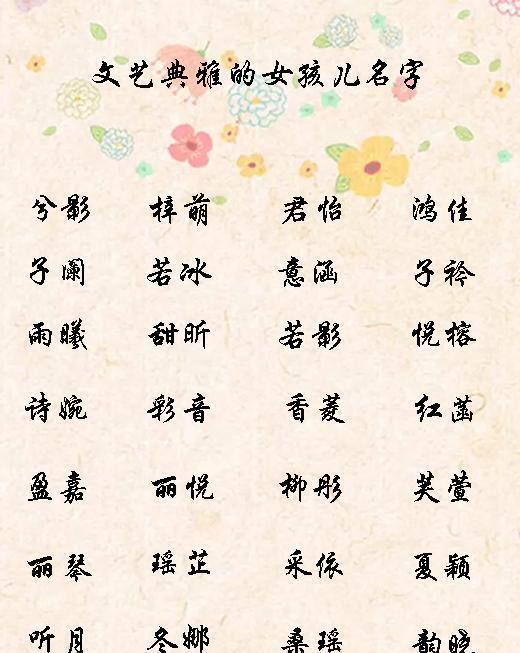 文艺典雅的女孩儿名字
兮影 梓萌 君怡 鸿佳
子阑 若冰 意涵 子衿
雨曦 甜昕 若影 悦榕
诗婉 彩音 香菱 红菡
盈嘉 丽悦 柳彤 芙萱
丽琴 瑶芷 采依 夏颖
听月 冬娜 桑瑶 韵晓